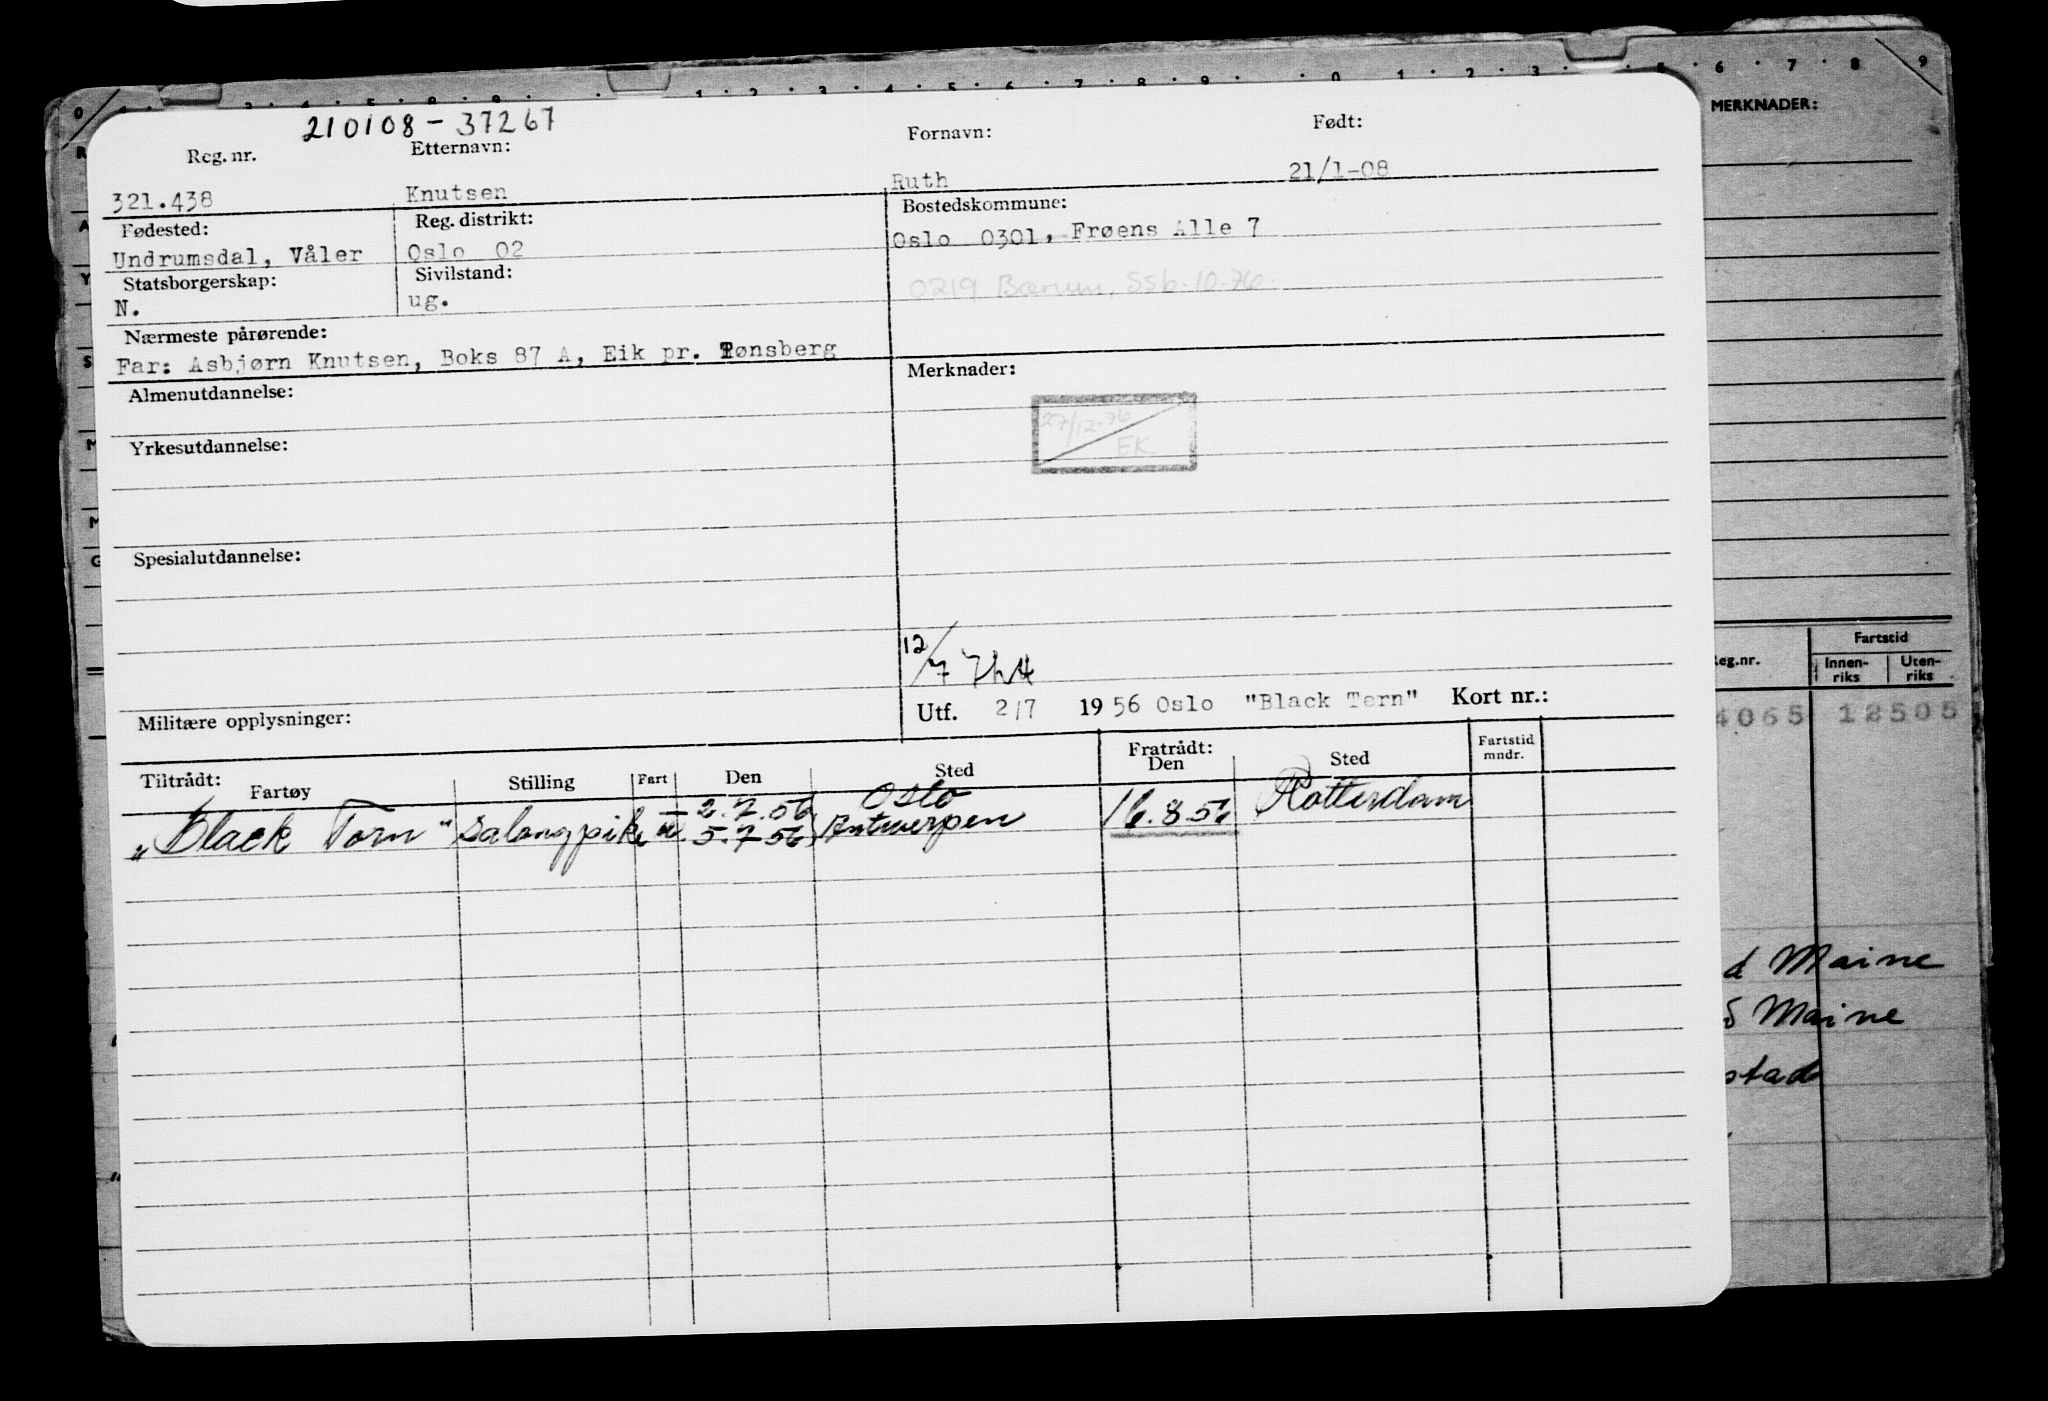 210108-37267
Reg. nr. Etternavn: Fornavn: Født:
321.438 Knutsen Ruth 21/1-08
Fødested: Reg. distrikt: Bostedskommune:
Undrumsdal, Våler Oslo 02 Oslo 0301, Frøens Alle 7
Statsborgerskap: Sivilstand:
N. ug. 0219 Bærum, SSb.10.76.
Nærmeste pårørende:
Far: Asbjørn Knutsen, Boks 87 A, Eik pr. Tønsberg
Almenutdannelse: Merknader:
27/12-76
EK
Yrkesutdannelse:
Spesialutdannelse:
12/7
Militære opplysninger: Utf. 2/7 1956 Oslo "Black Tern" Kort nr.:
Tiltrådt: Fartøy Stilling Fart Den Sted Fratrådt: Den Sted Fartstid mndr.
2.7.56 Oslo
"Black Torn" Salongpike u 5.7.56 Antwerpen 16.8.56 Rotterdam
MERKNADER:
Reg.nr. Fartstid
Innen-riks Uten-riks
4065 12505
d Maine
Maine
stad